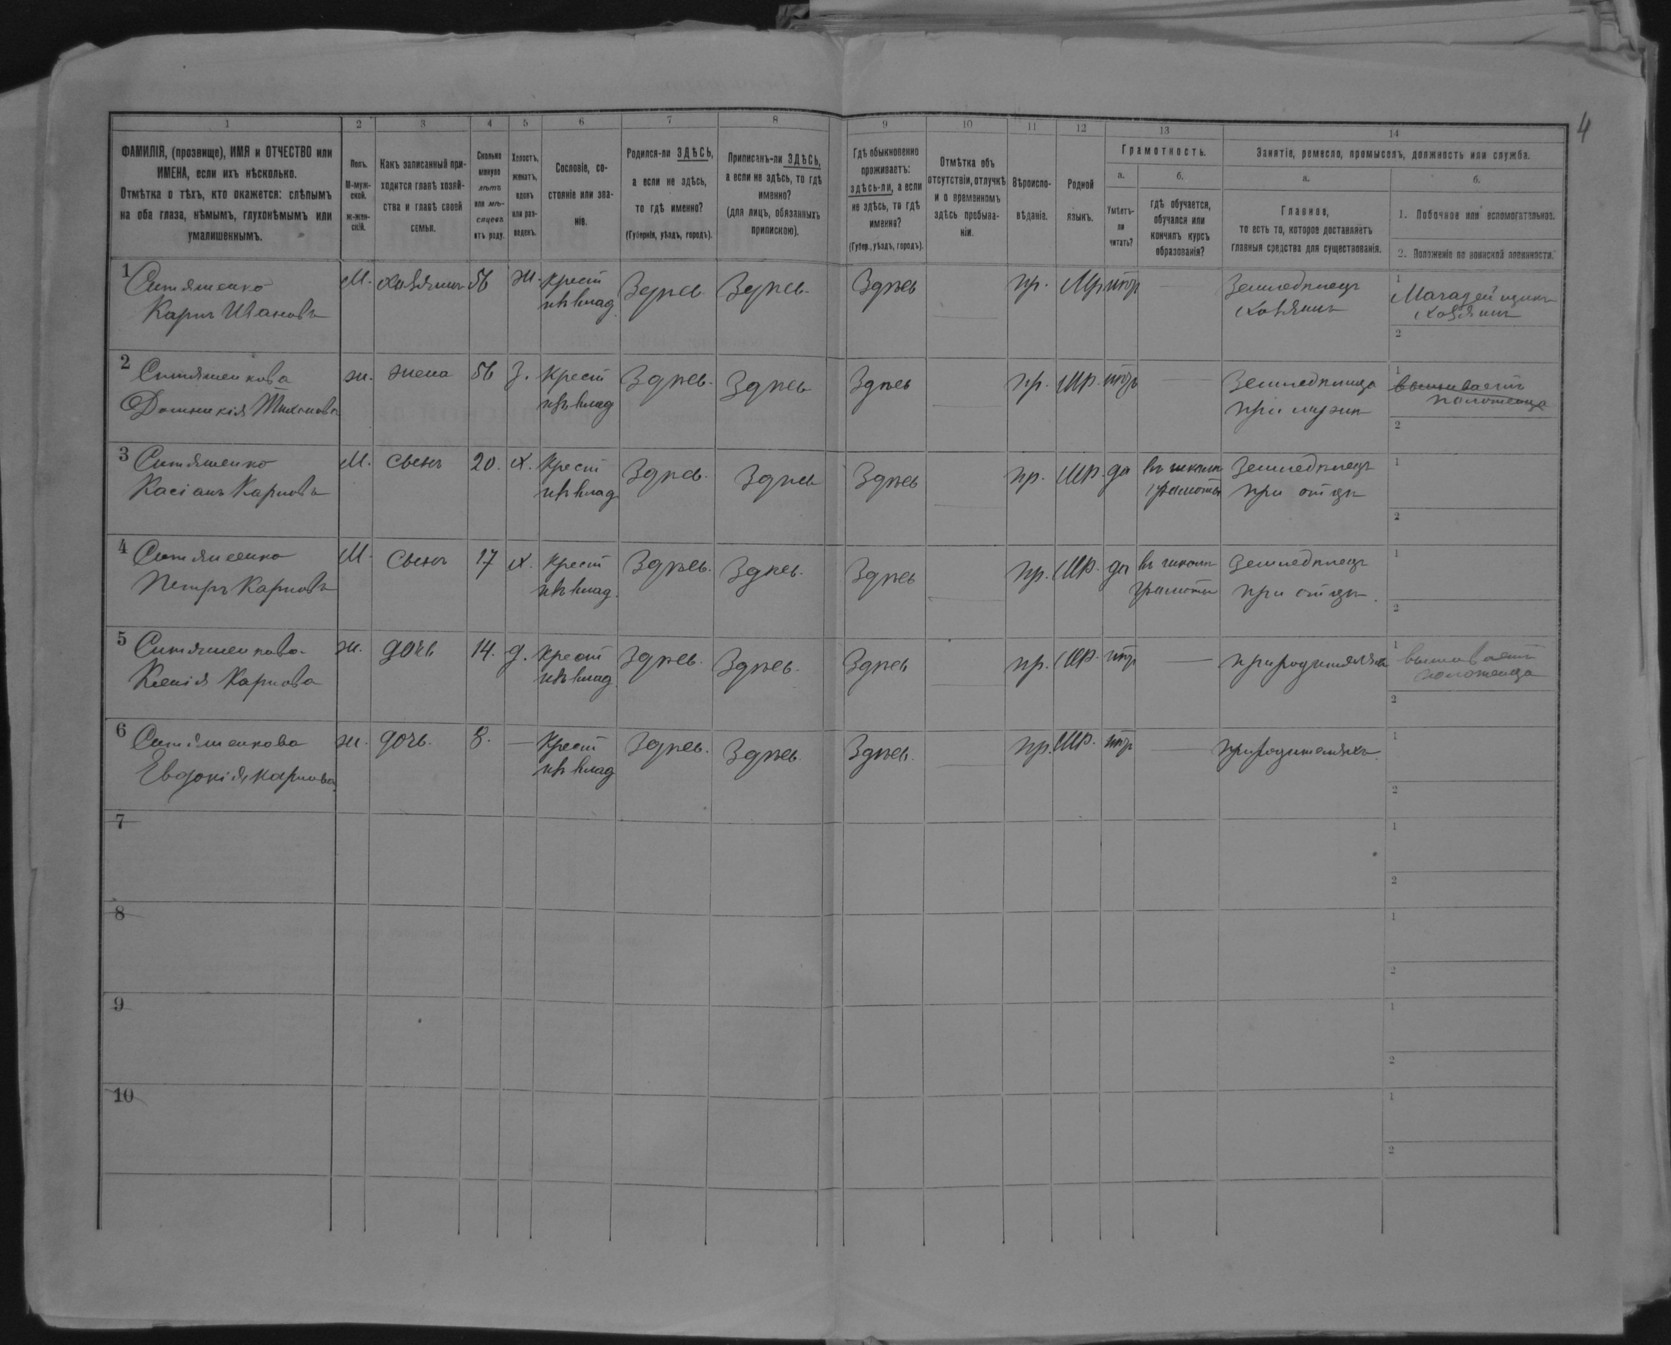 4
1
2
3
4
5
6
7
8
9
10
11
12
13
14
ФАМИЛІЯ, (прозвище), ИМЯ и ОТЧЕСТВО или
ИМЕНА, если ихъ нѣсколько.
Отмѣтка о тѣхъ, кто окажется: слѣпымъ
на оба глаза, нѣмымъ, глухонѣмымъ или
умалишеннымъ.
Полъ.
М-муж-
ской.
Ж-жен-
скій.
Какъ записанный при-
ходится главѣ хозяй-
ства и главѣ своей
семьи.
Сколько
минуло
лѣтъ
или мѣ-
сяцевъ
отъ роду.
Холостъ,
женатъ,
вдовъ
или раз-
веденъ.
Сословіе, со-
стояніе или зва-
ніе.
Родился-ли ЗДѢСЬ,
а если не здѣсь,
то гдѣ именно?
(Губернія, уѣздъ, городъ).
Приписанъ-ли ЗДѢСЬ,
а если не здѣсь, то гдѣ
именно?
(для лицъ, обязанныхъ
припискою).
Гдѣ обыкновенно
проживаетъ:
здѣсь-ли, а если
не здѣсь, то гдѣ
именно?
(Губер., уѣздъ, городъ).
Отмѣтка объ
отсутствіи, отлучкѣ
и о временномъ
здѣсь пребыва-
ніи.
Вѣроиспо-
вѣданіе.
Родной
языкъ.
Грамотность.
а.
Умѣетъ-
ли
читать?
б.
гдѣ обучается,
обучался или
кончилъ курсъ
образованія?
Занятіе, ремесло, промыселъ, должность или служба.
а.
Главное,
то есть то, которое доставляетъ
главныя средства для существованія.
б.
1. Побочное или вспомогательное.
2. Положеніе по воинской повинности.
1
Ситяшенко
Карпъ Ивановъ
М. хозяинъ 56 ж. крест
изъ влад. Здѣсь. Здѣсь. Здѣсь пр. Мр. нѣтъ — Земледѣлецъ
хозяинъ
1
хозяинъ
2
2
Ситяшенкова
Домникія Тихонова
ж. жена 56 з. крест
изъ влад Здѣсь. Здѣсь Здѣсь пр. Мр. нѣтъ — Земледѣлица
при мужѣ
1
вышиваетъ
полотенца
2
3
Ситяшенко
Касіанъ Карповъ
М. сынъ 20. х. крест
изъ влад Здѣсь. Здѣсь Здѣсь пр. Мр. да въ школѣ
грамоты Земледѣлецъ
при отцѣ
1
2
4
Ситяшенко
Петръ Карповъ
М. сынъ 17 х. крест
изъ влад. Здѣсь. Здѣсь. Здѣсь пр. Мр. да въ школѣ
грамоты Земледѣлецъ
при отцѣ.
1
2
5
Ситяшенкова
Ксенія Карпова
ж. дочь 14. д. крест
изъ влад. Здѣсь. Здѣсь. Здѣсь пр. Мр. нѣтъ — при родителяхъ
1
вышиваетъ
полотенца
2
6
Ситяшенкова
Евдокія Карпова
ж. дочь. 8. — крест
изъ влад Здѣсь. Здѣсь Здѣсь. пр. Мр. нѣтъ — при родителяхъ.
1
2
7
1
2
8
1
2
9
1
2
10
1
2